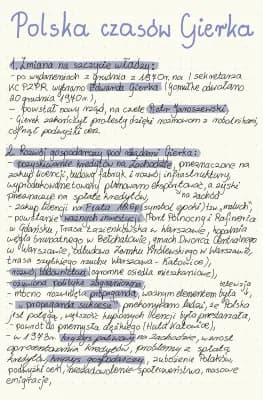 Polska czasów Gierka
1. Zmiana na szczycie władzy:
- po wydarzeniach z grudnia z 1970r. na I sekretarza
KC PZPR, wybrano Edwarda Gierka (Gomułkę odwołano
20 grudnia 1970r.),
- powstał nowy rząd, na czele Piotr Jaroszewicz,
- Gierek zakończył protesty dzięki rozmowom z robotnikami,
cofnął podwyżki cen.
2. Rozwój gospodarczy pod rządami Gierka:
- pozyskiwanie kredytów na Zachodzie, przeznaczone na
zakup licencji, budowę fabryk i rozwój infrastruktury,
wyprodukowane towary planowano eksportować, a zyski
na zachód
przeznaczać na spłatę kredytów,
- zakup licencji na Fiata 126p (symbol epoki) (tzw. maluch),
- powstanie ważnych inwestycji (Port Północny i Rafineria
w Gdańsku, Trasa Łazienkowska w Warszawie, kopalnia
węgla brunatnego w Bełchatowie, gmach Dworca Centralnego
w Warszawie, odbudowa Zamku Królewskiego w Warszawie,
trasa szybkiego ruchu Warszawa - Katowice),
- rozwój budownictwa (ogromne osiedla mieszkaniowe),
- ożywiona polityka zagraniczna,
telewizja
- mocno rozwinięta propaganda, ważnym elementem była
- w propaganda sukcesu przekonywano ludzi, że Polska
jest potęgą, wyższość kupionych licencji była przestarzała,
- powrót do przemysłu ciężkiego (Huta Katowice),
- w 1973r. kryzys paliwowy na zachodzie, wzrost
oprocentowania kredytów, problemy z spłatą
kredytów, kryzys gospodarczy, zubożenie Polaków,
podwyżki cen, niezadowolenie społeczeństwa, masowe
emigracje,